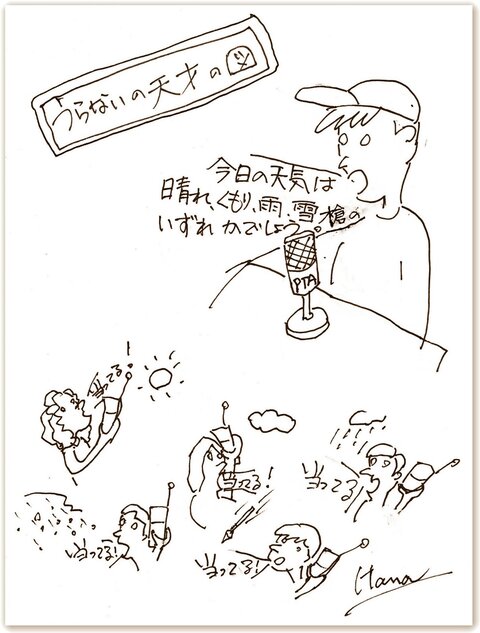 うらないの天才の図
今日の天気は
晴れ、くもり、雨、雪、槍の
いずれかでしょう。
PTA
当ってる!
当ってる!
当ってる!
当ってる!
当ってる!
Hana